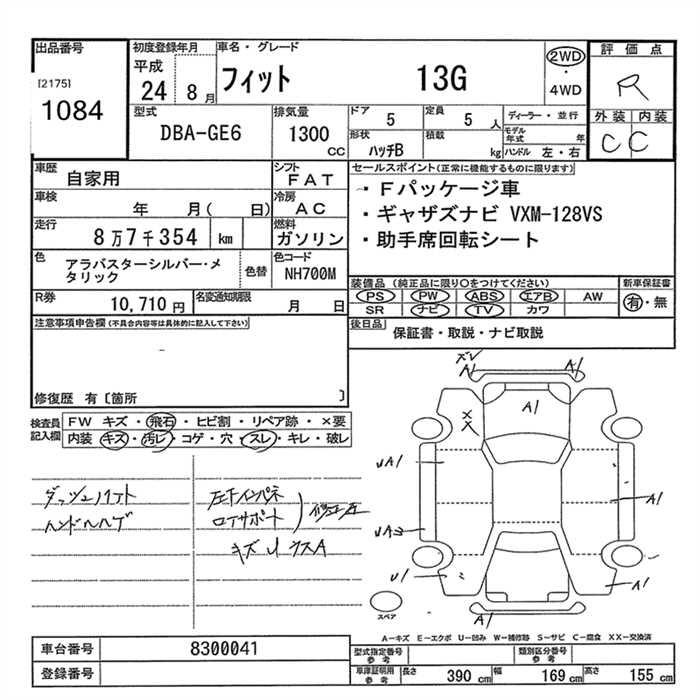 出品番号
[2175]
1084
初度登録年月
平成
24 8月
車名・グレード
フィット 13G
2WD
・
4WD
評価点
R
外装 内装
C C
型式
DBA-GE6
排気量
1300 CC
ドア
5
定員
5 人
形状
ハッチB
積載
kg
ディーラー・並行
モデル年式 年
ハンドル 左・右
車歴
自家用
シフト
FAT
車検
年 月( 日)
冷房
AC
走行
8万7千354 km
燃料
ガソリン
色
アラバスターシルバー・メタリック
色替
色コード
NH700M
R券
10,710 円
名変通知期限
月 日
セールスポイント(正常に機能するものに限ります)
・Fパッケージ車
・ギャザズナビ VXM-128VS
・助手席回転シート
装備品 (純正品に限り○をつけてください)
PS PW ABS エアB AW
SR ナビ TV カワ
新車保証書
有・無
後日品
保証書・取説・ナビ取説
注意事項申告欄(不具合内容等は具体的に記入して下さい)
修復歴 有〔箇所 〕
検査員記入欄
FW キズ・飛石・ヒビ割・リペア跡・×要
内装 キズ・汚レ・コゲ・穴・スレ・キレ・破レ
ハンドルハゲ
左下インパネ
ロアサポート
修正歴
ズレ
A1
A1
A1
XX
UA1
UA2
U1
A1
A1
A1
スペア
A-キズ E-エクボ U-凹み W-補修跡 S-サビ C-腐食 XX-交換済
車台番号
8300041
登録番号
型式指定番号
参考
類別区分番号
参考
車庫証明用
参考
長さ 390 cm 幅 169 cm 高さ 155 cm